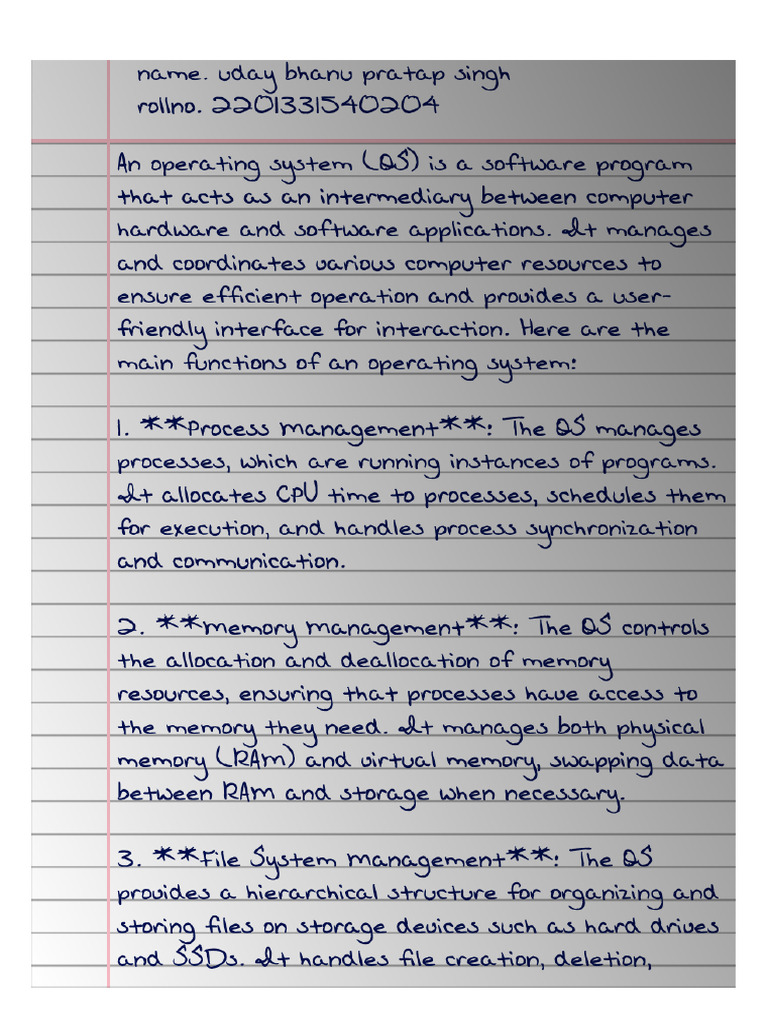 name. uday bhanu pratap singh
rollno. 2201331540204
An operating system (OS) is a software program
that acts as an intermediary between computer
hardware and software applications. It manages
and coordinates various computer resources to
ensure efficient operation and provides a user-
friendly interface for interaction. Here are the
main functions of an operating system:
1. **Process Management**: The OS manages
processes, which are running instances of programs.
It allocates CPU time to processes, schedules them
for execution, and handles process synchronization
and communication.
2. **Memory Management**: The OS controls
the allocation and deallocation of memory
resources, ensuring that processes have access to
the memory they need. It manages both physical
memory (RAM) and virtual memory, swapping data
between RAM and storage when necessary.
3. **File System Management**: The OS
provides a hierarchical structure for organizing and
storing files on storage devices such as hard drives
and SSDs. It handles file creation, deletion,